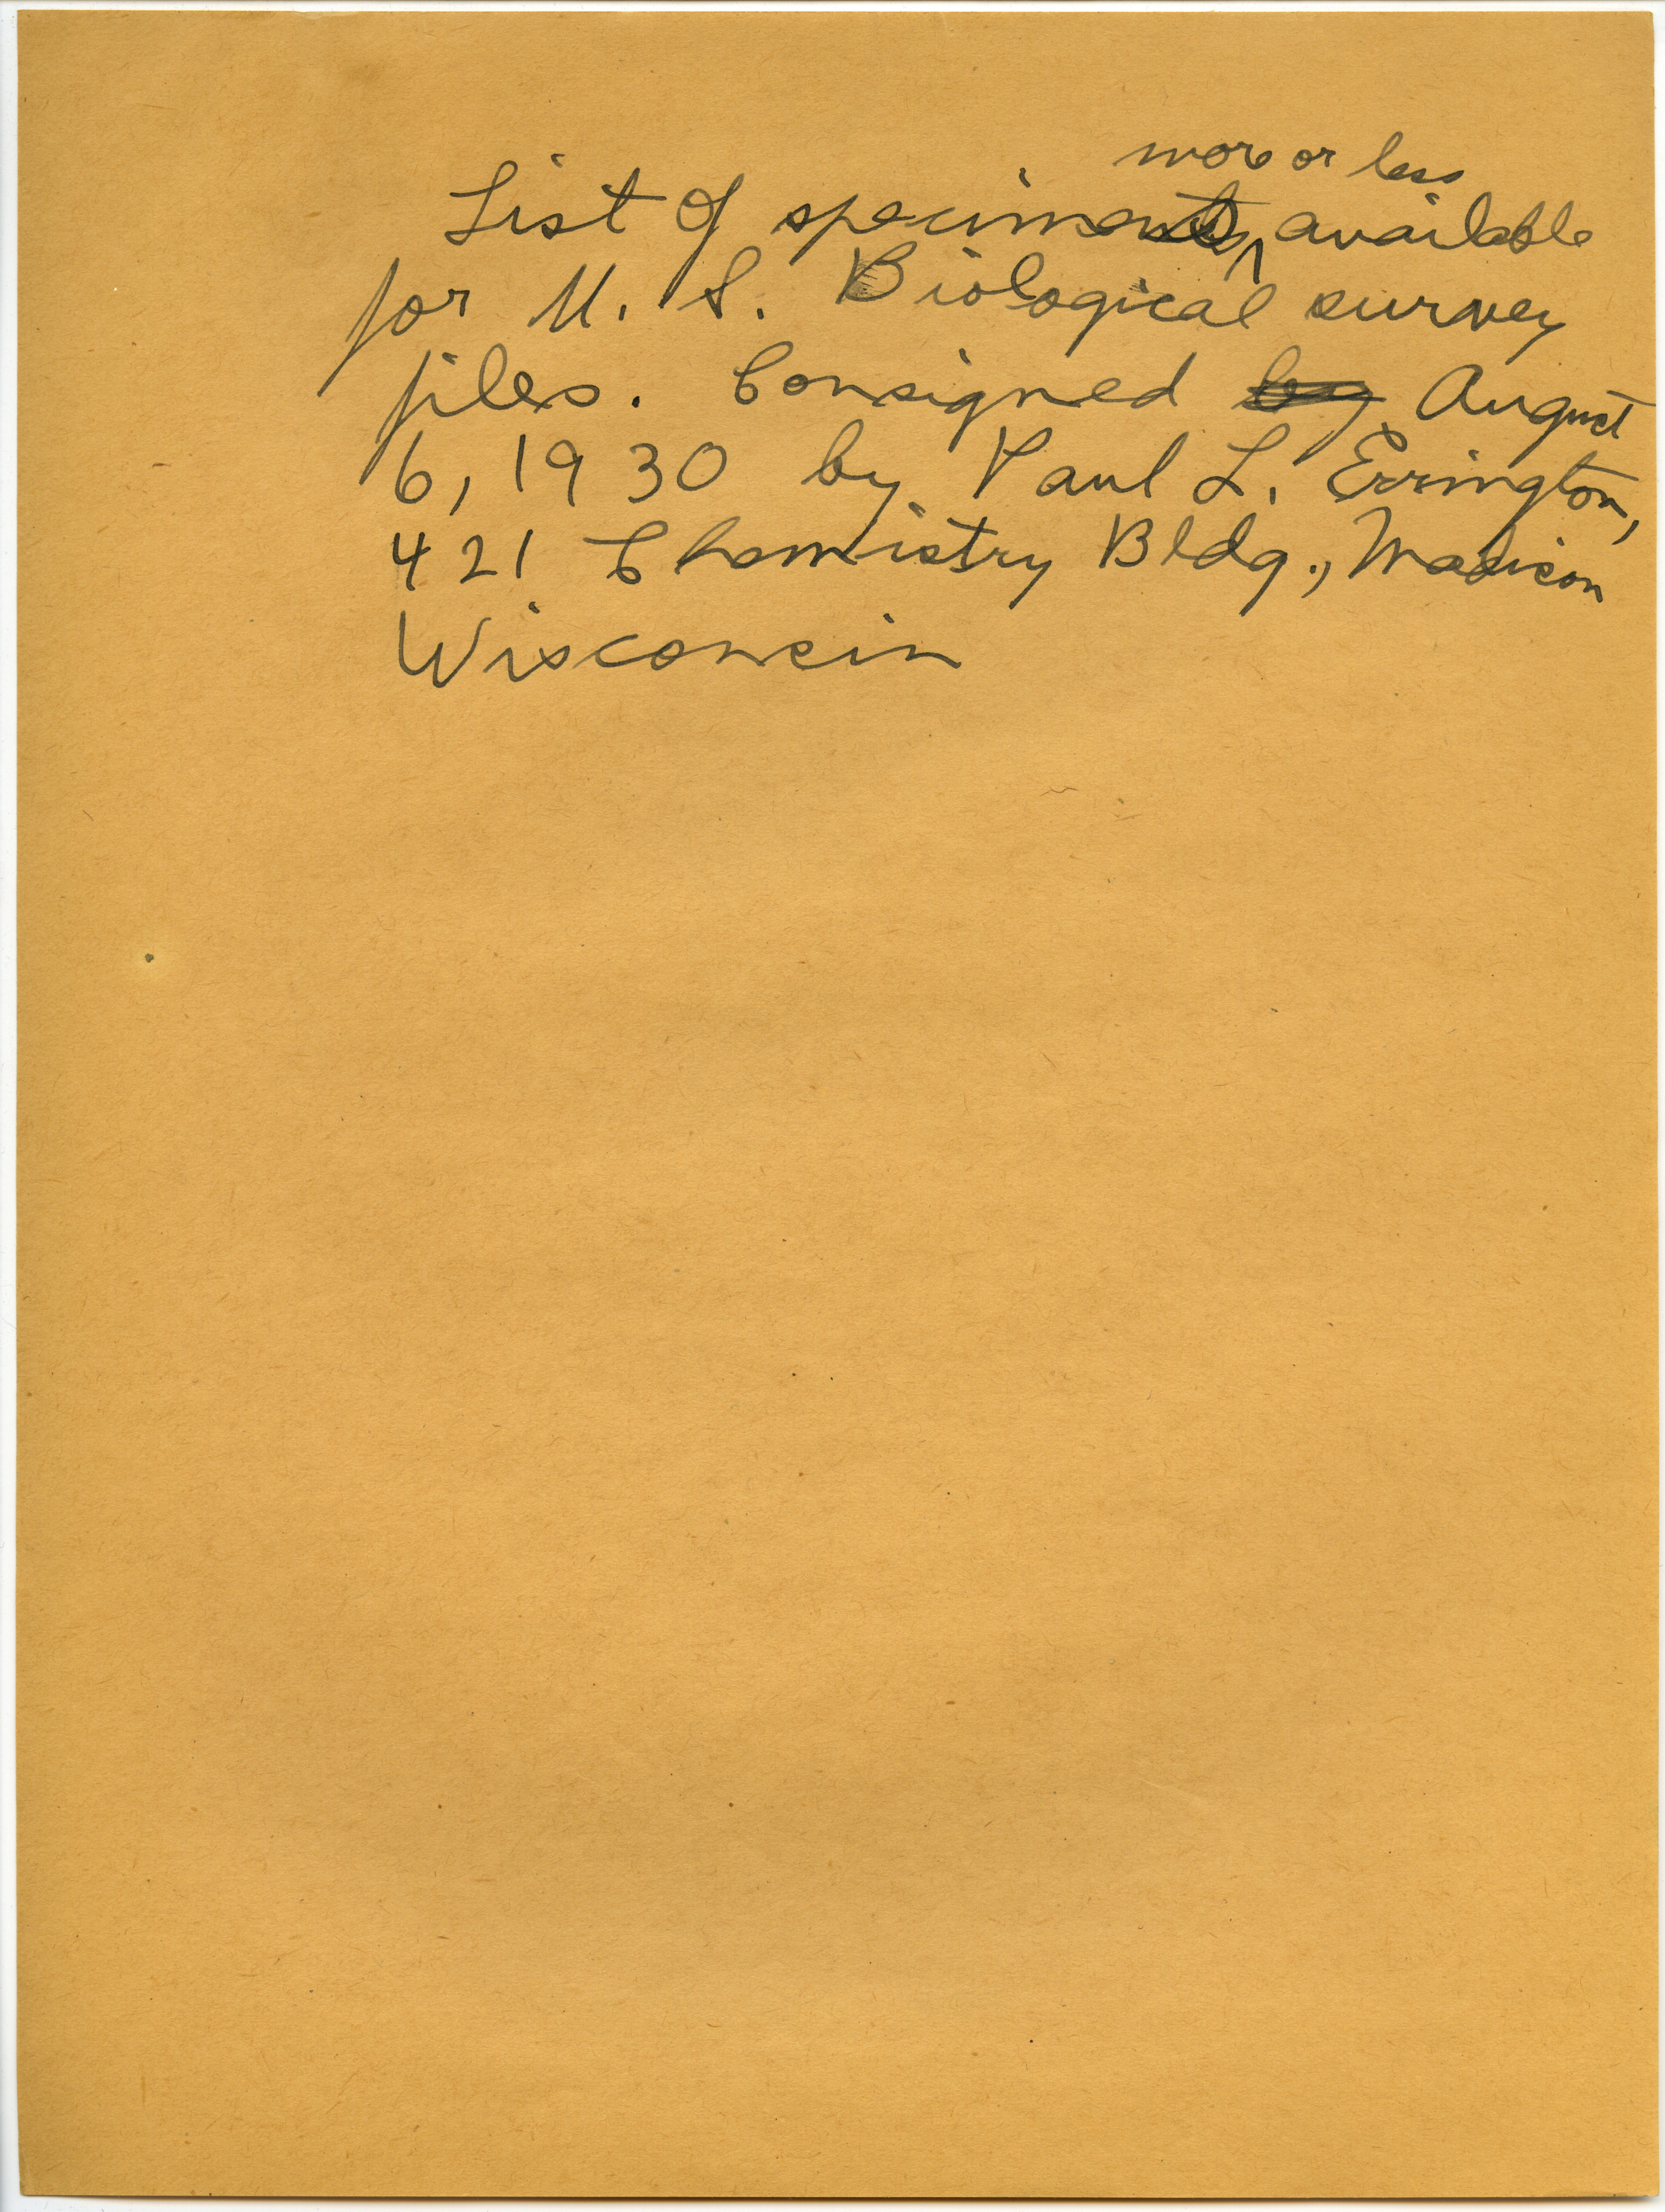 more or less
List of specimens available
for U. S. Biological survey
files. Consigned by August
6, 1930 by Paul L. Errington,
421 Chemistry Bldg., Madison
Wisconsin